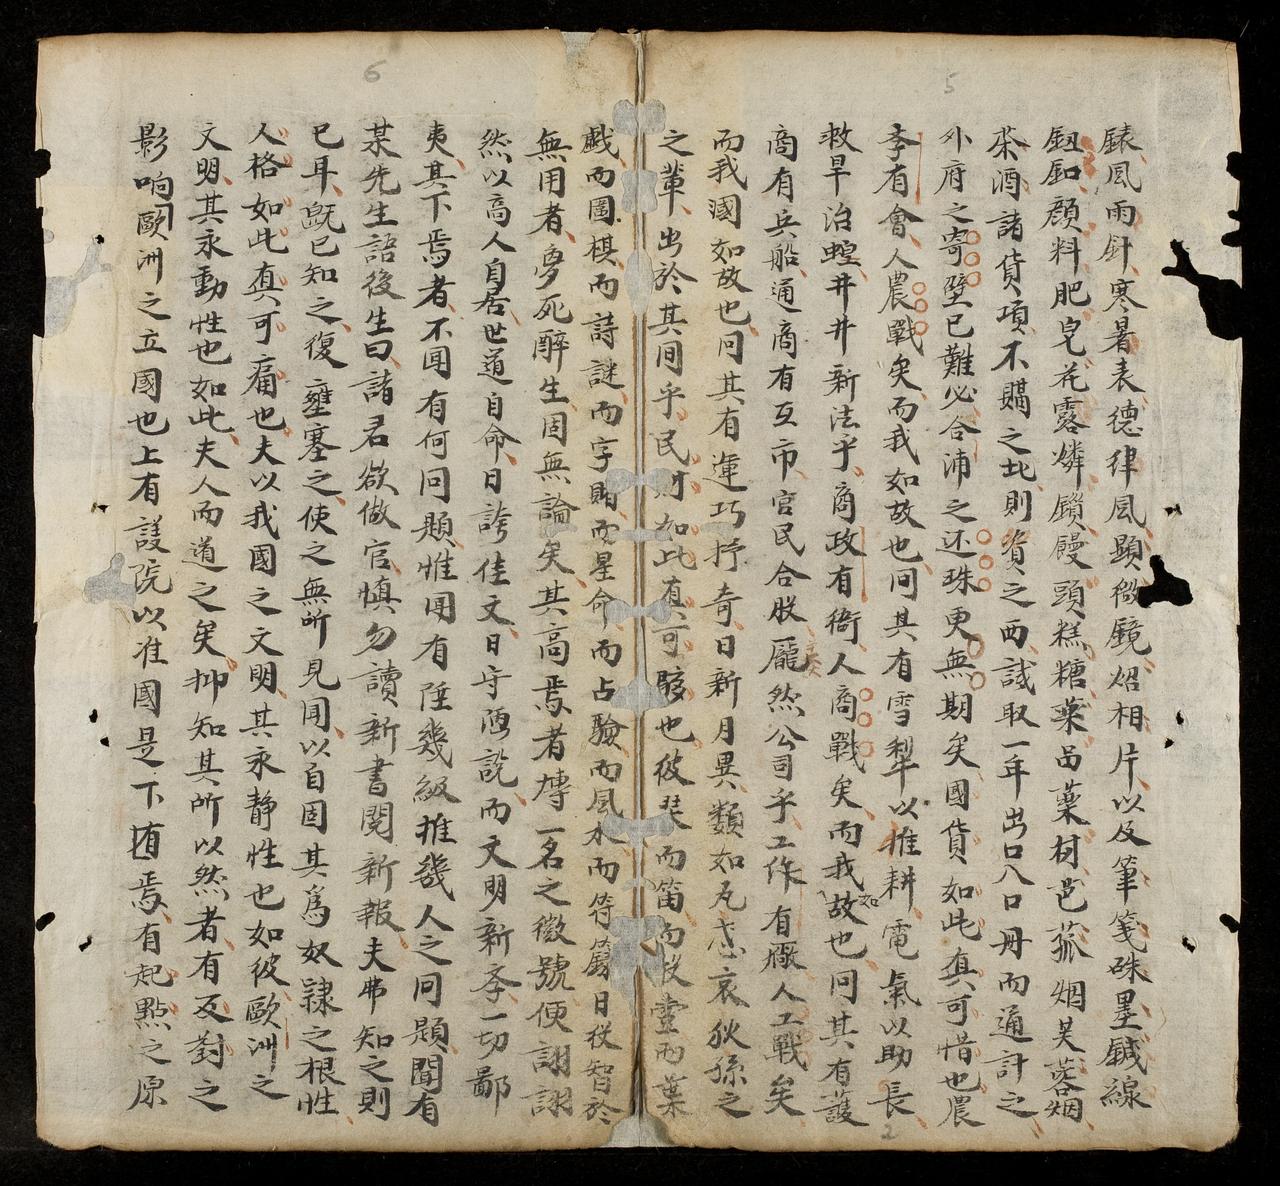 5
錶風雨針寒暑表德律風顯微鏡炤相片以及筆箋硃墨鍼線
鈕釦顔料肥皂花露燐鑽饅頭糕糖菓品藥材芭菰烟芙蓉烟
茶酒諸貨項不購之北則資之西試取一年出口入口冊而通計之
外府之寄璧已難必合浦之还珠更無期矣國貨如此真可惜也農
斈有會人農戰矣而我如故也问其有雪犁以推耕電氣以助長
救旱治蝗井井新法乎商政有衙人商戰矣而我如故也问其有護
商有兵船通商有互市官民合股龎然公司乎工作有廠人工戰矣
而我國如故也问其有運巧抒奇日新月異類如瓦忒哀狄孫之
之輩出於其间乎民財如此真可駭也彼琹而笛而投壶而葉
2
6
戲而圍棋而詩謎而字賭而星命而占驗而風水而符籙日役智於
無用者夢死醉生固無論矣其高焉者慱一名之徽號便詡詡
然以高人自居世道自命日誇佳文日守陋說而文明新斈一切鄙
夷其下焉者不闻有何问題惟闻有陞幾級推幾人之问題聞有
某先生語後生曰諸君欲做官慎勿讀新書閱新報夫弗知之則
已耳既已知之復壅塞之使之無所見闻以自固其爲奴隷之根性
人格如此真可痛也夫以我國之文明其永静性也如彼歐洲之
文明其永動性也如此夫人而道之矣抑知其所以然者有反對之
影响歐洲之立國也上有議院以准國是下有焉有起點之原